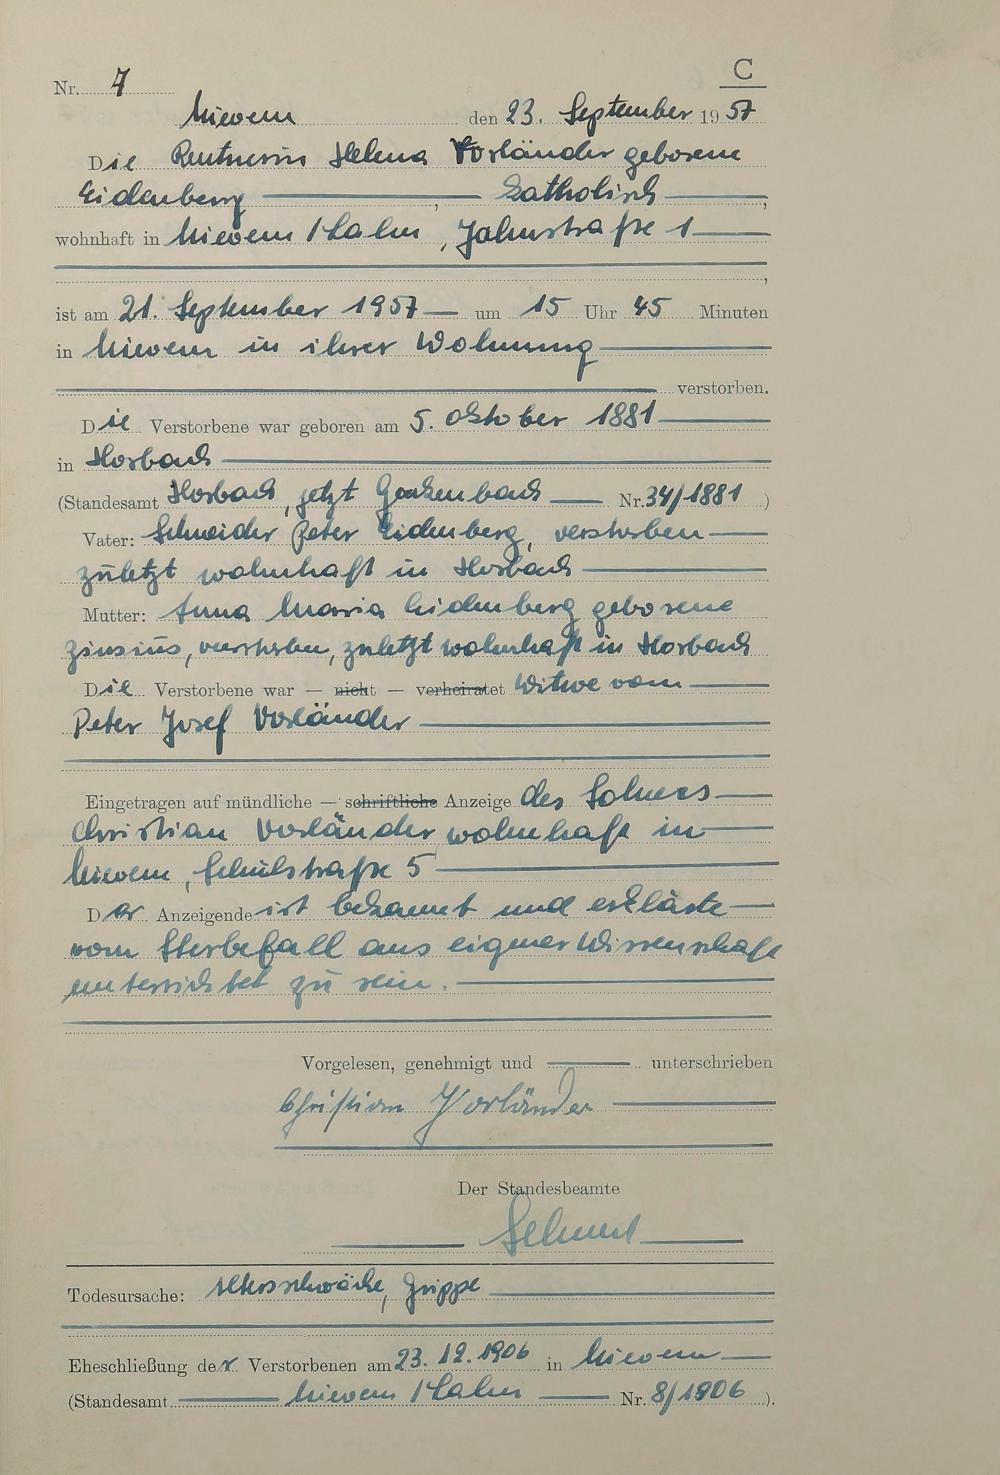 C
Nr. 7
Nievern den 23. September 1957
Die Rentnerin Helena Vorländer geborene
Eidenberg, katholisch,
wohnhaft in Nievern/Lahn, Jahnstraße 1
,
ist am 21. September 1957 um 15 Uhr 45 Minuten
in Nievern in ihrer Wohnung
verstorben.
Die Verstorbene war geboren am 5. Oktober 1881
in Horbach
(Standesamt Horbach, jetzt Gackenbach Nr. 34/1881)
Vater: Schneider Peter Eidenberg, verstorben
zuletzt wohnhaft in Horbach
Mutter: Anna Maria Eidenberg geborene
verstorben, zuletzt wohnhaft in Horbach
Die Verstorbene war — nicht — verheiratet Witwe vom
Peter Josef Vorländer
Eingetragen auf mündliche — schriftliche Anzeige des Sohnes
Christian Vorländer wohnhaft in
Nievern, Schulstraße 5
Der Anzeigende ist bekannt und erklärte
vom Sterbefall aus eigener Wissenschaft
unterrichtet zu sein.
Vorgelesen, genehmigt und unterschrieben
Christian Vorländer
Der Standesbeamte
Todesursache: Altersschwäche, Grippe
Eheschließung der Verstorbenen am 23. 12. 1906 in Nievern
(Standesamt Nievern/Lahn Nr. 8/1906).